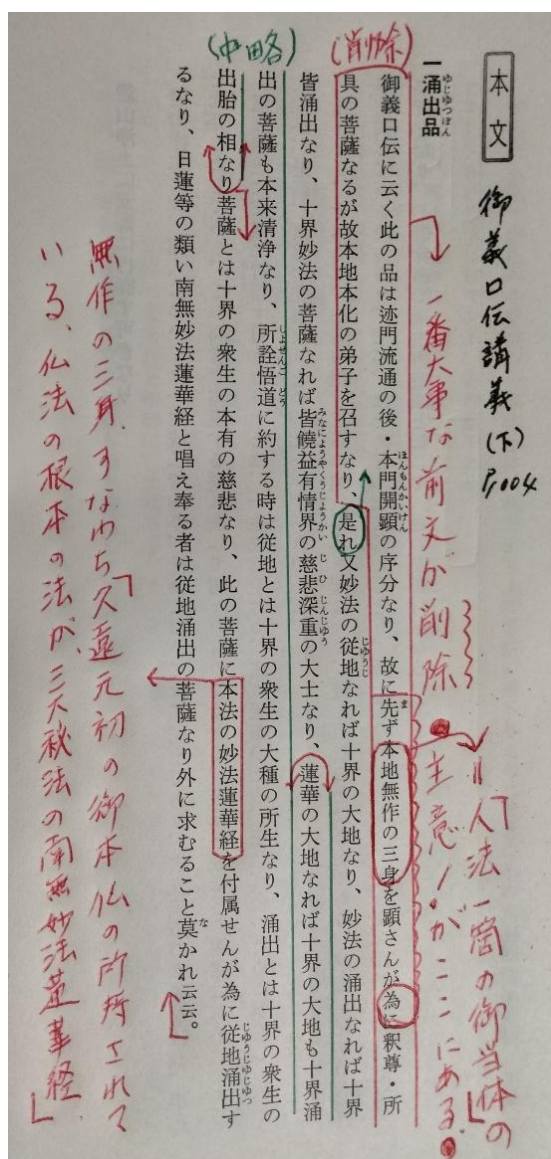 本文
御義口伝講義(下)
P,004
一涌出品
ゆじゆつぽん
(削除)
(中略)
一番大事な前文が削除
=「人法一箇の御当体の」
主意!がここにある!
御義口伝に云く此の品は迹門流通の後・本門開顕の序分なり、故に先ず本地無作の三身を顕さんが為に釈尊・所
具の菩薩なるが故本地本化の弟子を召すなり、是れ又妙法の従地なれば十界の大地なり、妙法の涌出なれば十界
皆涌出なり、十界妙法の菩薩なれば皆饒益有情界の慈悲深重の大士なり、蓮華の大地なれば十界の大地も十界涌
出の菩薩も本来清浄なり、所詮悟道に約する時は従地とは十界の衆生の大種の所生なり、涌出とは十界の衆生の
出胎の相なり菩薩とは十界の衆生の本有の慈悲なり、此の菩薩に本法の妙法蓮華経を付属せんが為に従地涌出す
るなり、日蓮等の類い南無妙法蓮華経と唱え奉る者は従地涌出の菩薩なり外に求むること莫かれ云云。
無作の三身、すなわち「久遠元初の御本仏の所持されて
いる、仏法の根本の法が、三大秘法の南無妙法蓮華経」